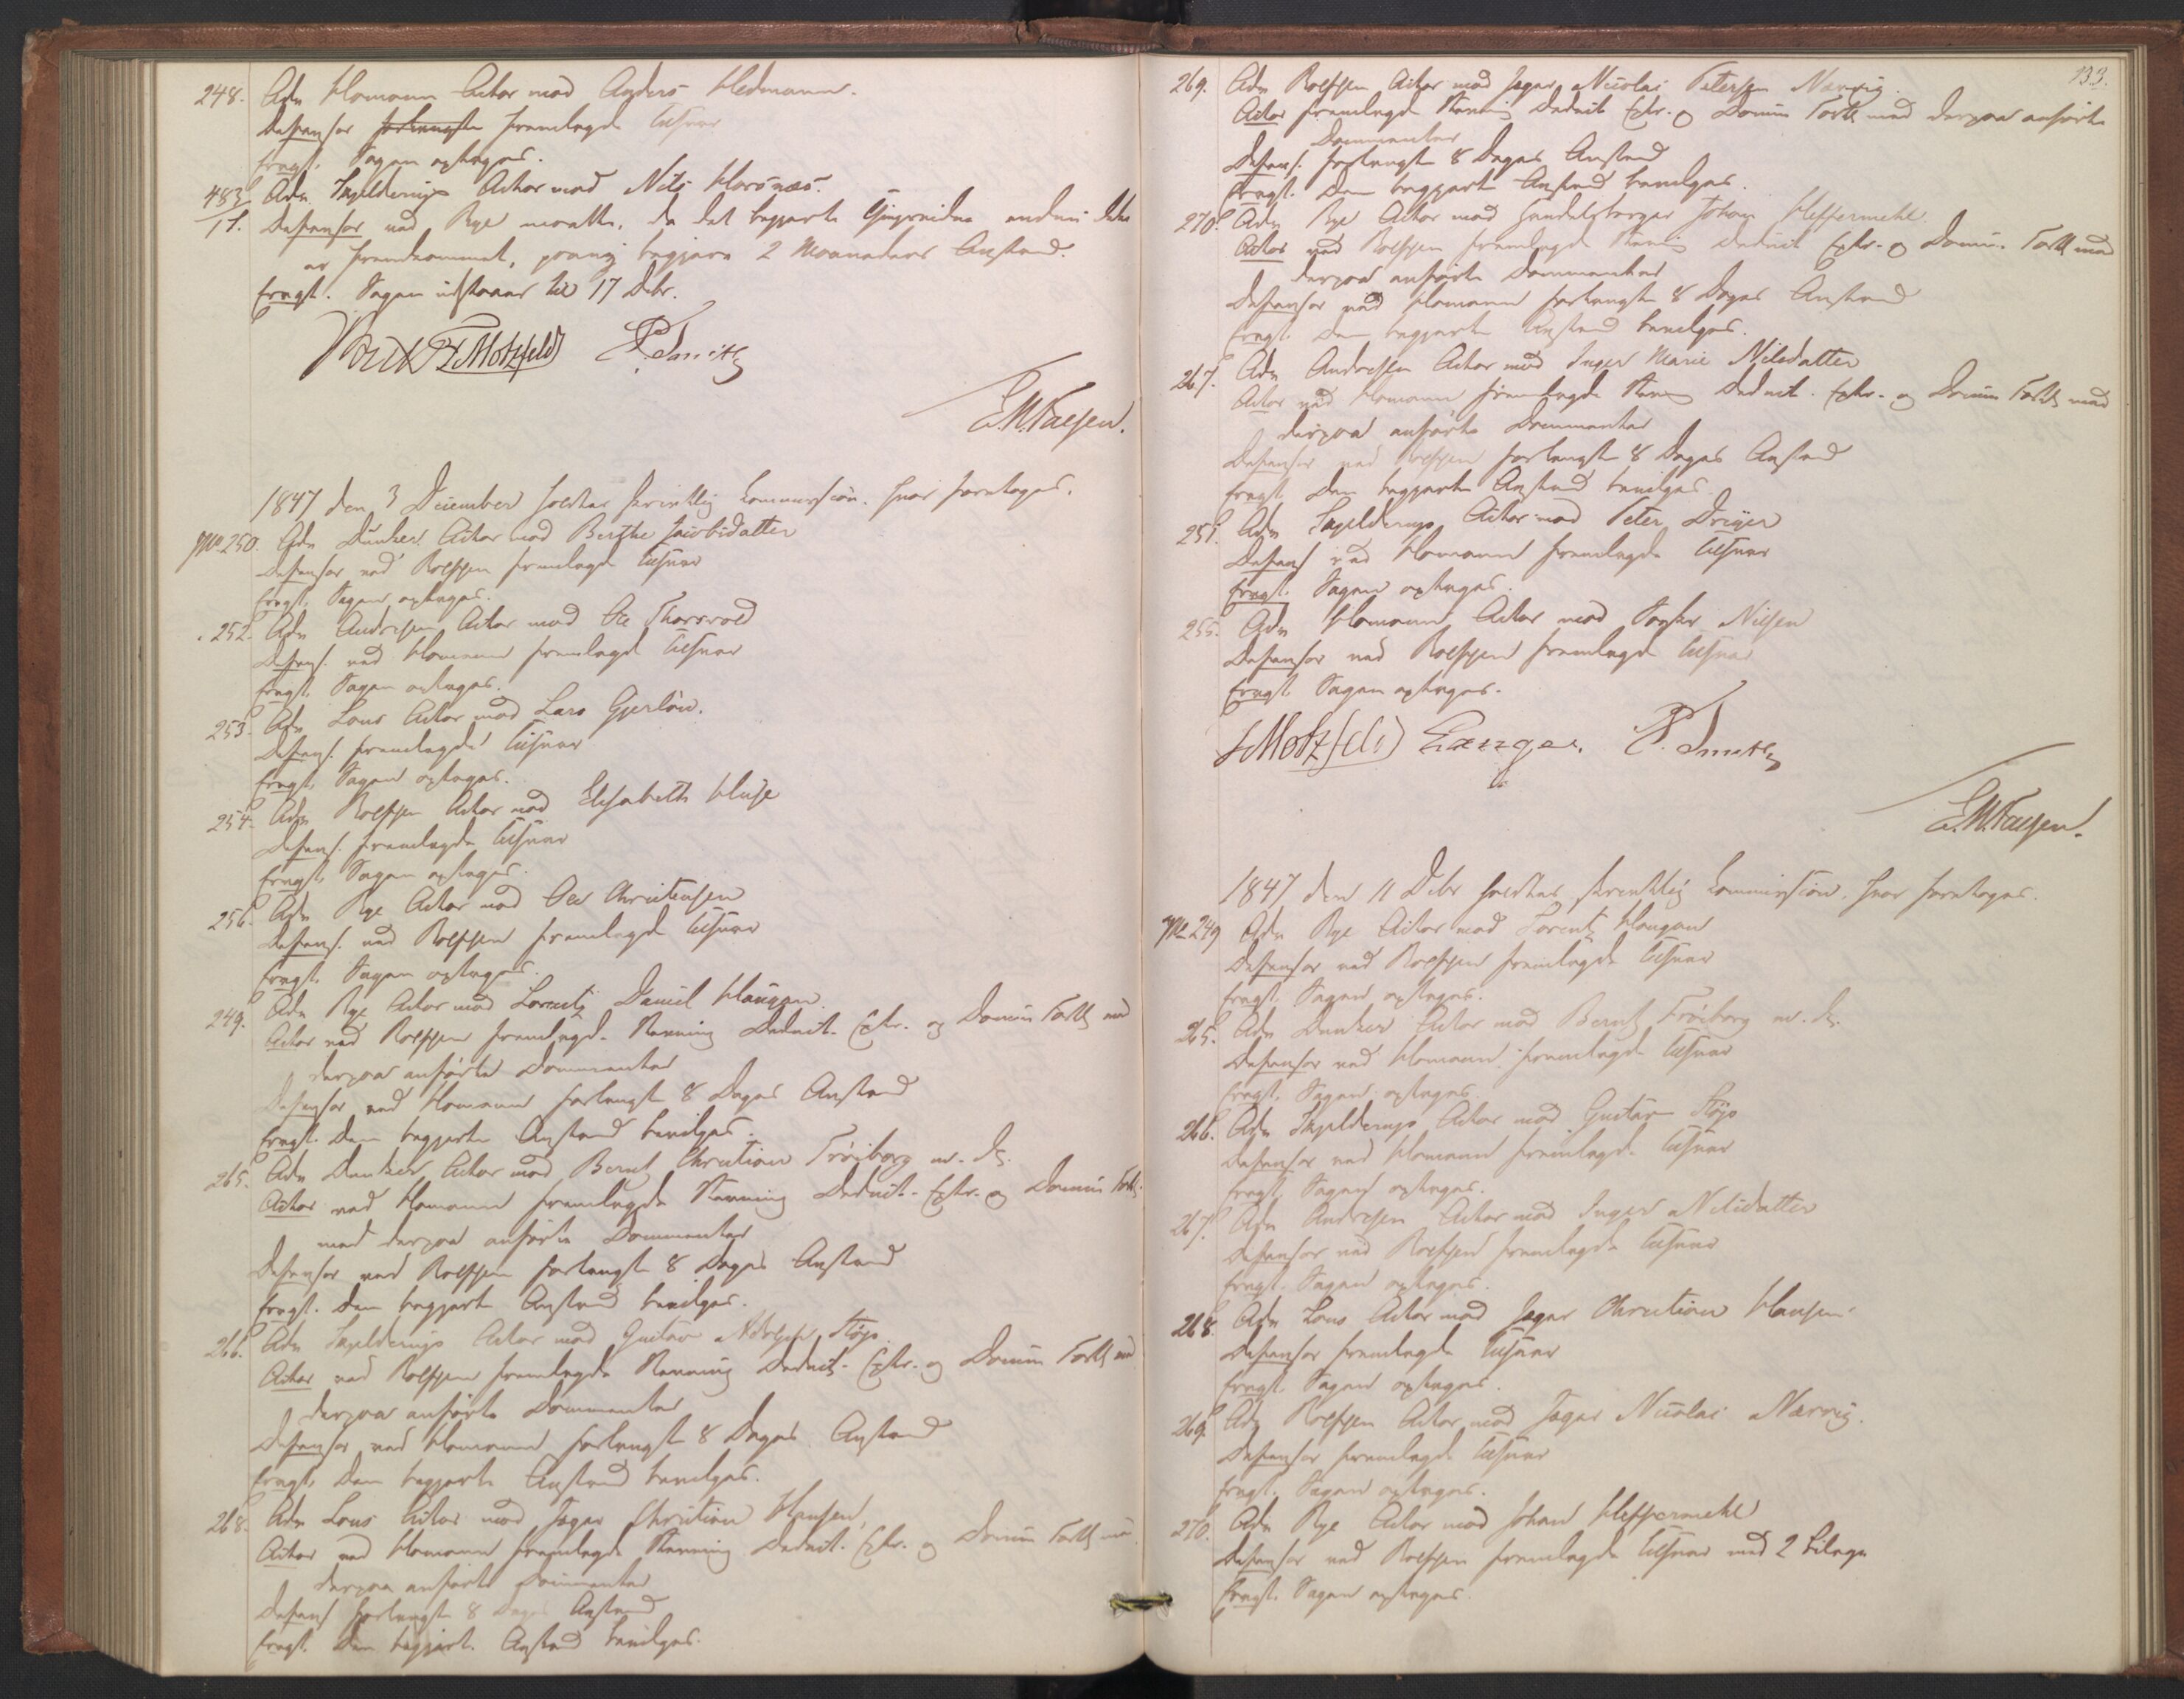 248. Adv. Homann Actor mod Anders Hedmann.
Defensor forlangte fremlagde Tilsvar
Eragt. Sagen optages.
483/1. Adv. Skjelderup Actor mod Nils Horsnæs.
Defensor ved Bye mødte, da det begjærte endnu ikke
er fremkommet, paany begjære 2 Maaneders Anstand.
Eragt. Sagen udstaaer til 17 Debr.
Motzfeldt PSmith
E.M.Faÿen.
1847 den 3 December holdtes skriftlig Commission. hvor foretoges.
No 250. Adv. Dunker Actor mod Berthe Jacobsdatter
Defensor ved Rolfsen fremlagde Tilsvar
Eragt. Sagen optages.
252. Adv. Andresen Actor mod Ole Thorsrød
Defens. ved Homann fremlagde Tilsvar
Eragt. Sagen optages.
253. Adv. Lous Actor mod Lars Gjerløw.
Defens. fremlagde Tilsvar
Eragt. Sagen optages.
254. Adv. Rolfsen Actor mod Elisabeth Huse
Defens. fremlagde Tilsvar
Eragt. Sagen optages.
256. Adv. Bye Actor mod Ole Christensen
Defens. ved Rolfsen fremlagde Tilsvar
Eragt. Sagen optages.
249. Adv. Bye Actor mod Lorentz Daniel Haugan.
Actor ved Rolfsen fremlagde Stevning Deduct. Extr. og Domin Forts med
derpaa anførte Documenter
Defensor ved Homann forlangte 8 Dages Anstand
Eragt. Den begjærte Anstand bevilges.
265. Adv. Dunker Actor mod Bernt Christian Frøiborg m. Fl.
Actor ved Homann fremlagde Stevning Deduct. Extr. og Domin Forts.
med derpaa anførte Documenter
Defensor ved Rolfsen forlangte 8 Dages Anstand
Eragt. Den begjærte Anstand bevilges.
266. Adv. Skjelderup Actor mod Gustav Adolph Høyo
Actor ved Rolfsen fremlagde Stevning Deduct. Extr. og Domin Forts med
derpaa anførte Documenter
Defensor ved Homann forlangte 8 Dages Anstand
Eragt. Den begjærte Anstand bevilges.
268. Adv. Lous Actor mod Jæger Christian Hansen,
Actor ved Homann fremlagde Stevning Deduct. Extr. og Domin Forts med
derpaa anførte Documenter
Defens forlangte 8 Dages Anstand
Eragt. Den begjærte Anstand bevilges.
133.
269. Adv. Rolfsen Actor mod Jæger Nicolai Petersen Narvig.
Actor fremlagde Stevning Deduct Extr. og Domin Forts med derpaa anførte
Documenter
Defens. forlangte 8 Dages Anstand
Eragt. Den begjærte Anstand bevilges.
270. Adv. Bye Actor mod Handelsborger Johan Heffermehl.
Actor ved Rolfsen fremlagde Stevning Deduct Extr. og Domin. Forts med
derpaa anførte Documenter
Defensor ved Homann forlangte 8 Dages Anstand
Eragt. Den begjærte Anstand bevilges.
267. Adv. Andresen Actor mod Inger Marie Nilsdatter
Actor ved Homann fremlagde Stevning Deduct. Extr. og Domin Forts med
derpaa anførte Documenter
Defensor ved Rolfsen forlangte 8 Dages Anstand
Eragt. Den begjærte Anstand bevilges.
251. Adv. Skjelderup Actor mod Peter Dreyer
Defens ved Homann fremlagde Tilsvar
Eragt. Sagen optages.
255. Adv. Homann Actor mod Nilsen
Defensor ved Rolfsen fremlagde Tilsvar
Eragt. Sagen optages.
Motzfeldt Lange. P. Smith
E.M.Faÿen.
1847 den 11 Debr holdtes skriftlig Commission. hvor foretoges.
No 249 Adv. Bye Actor mod Lorentz Haugan
Defensor ved Rolfsen fremlagde Tilsvar
Eragt. Sagen optages.
265. Adv. Dunker Actor mod Bernt Frøiborg m. Fl.
Defensor ved Homann fremlagde Tilsvar
Eragt. Sagen optages.
266. Adv. Skjelderup Actor mod Gustav Høyo
Defensor ved Homann fremlagde Tilsvar
Eragt. Sagen optages.
267. Adv. Andresen Actor mod Inger Nilsdatter
Defensor ved Rolfsen fremlagde Tilsvar
Eragt. Sagen optages.
268. Adv. Lous Actor mod Jæger Christian Hansen.
Defensor fremlagde Tilsvar
Eragt. Sagen optages.
269. Adv. Rolfsen Actor mod Jæger Nicolai Narvig.
Defensor fremlagde Tilsvar
Eragt. Sagen optages.
270. Adv. Bye Actor mod Johan Heffermehl
Defensor ved Rolfsen fremlagde Tilsvar med 2 Bilage
Eragt. Sagen optages.